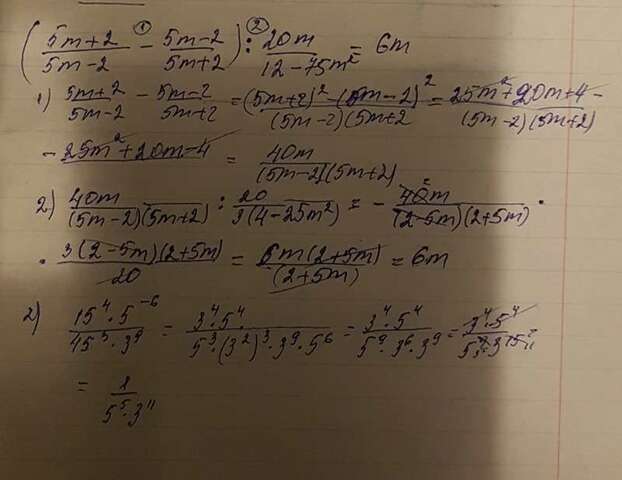 ( (5m+2)/(5m-2) - (5m-2)/(5m+2) ) : 20m/(12-75m²) = 6m
① ②
1) (5m+2)/(5m-2) - (5m-2)/(5m+2) = ((5m+2)² - (5m-2)²)/((5m-2)(5m+2 = (25m²+20m+4 -)/((5m-2)(5m+2))
- 25m²+20m-4 = 40m/((5m-2)(5m+2))
2) 40m/((5m-2)(5m+2)) : 20/(3(4-25m²)) = - 40m/((2-5m)(2+5m)) ·
· 3(2-5m)(2+5m)/20 = 6m(2+5m)/(2+5m) = 6m
2) 15⁴·5⁻⁶/(45³·3⁹) = 3⁴·5⁴/(5³·(3²)³·3⁹·5⁶) = 3⁴·5⁴/(5⁹·3⁶·3⁹) = 3⁴·5⁴/(5⁹·3¹⁵)
= 1/(5⁵·3¹¹)